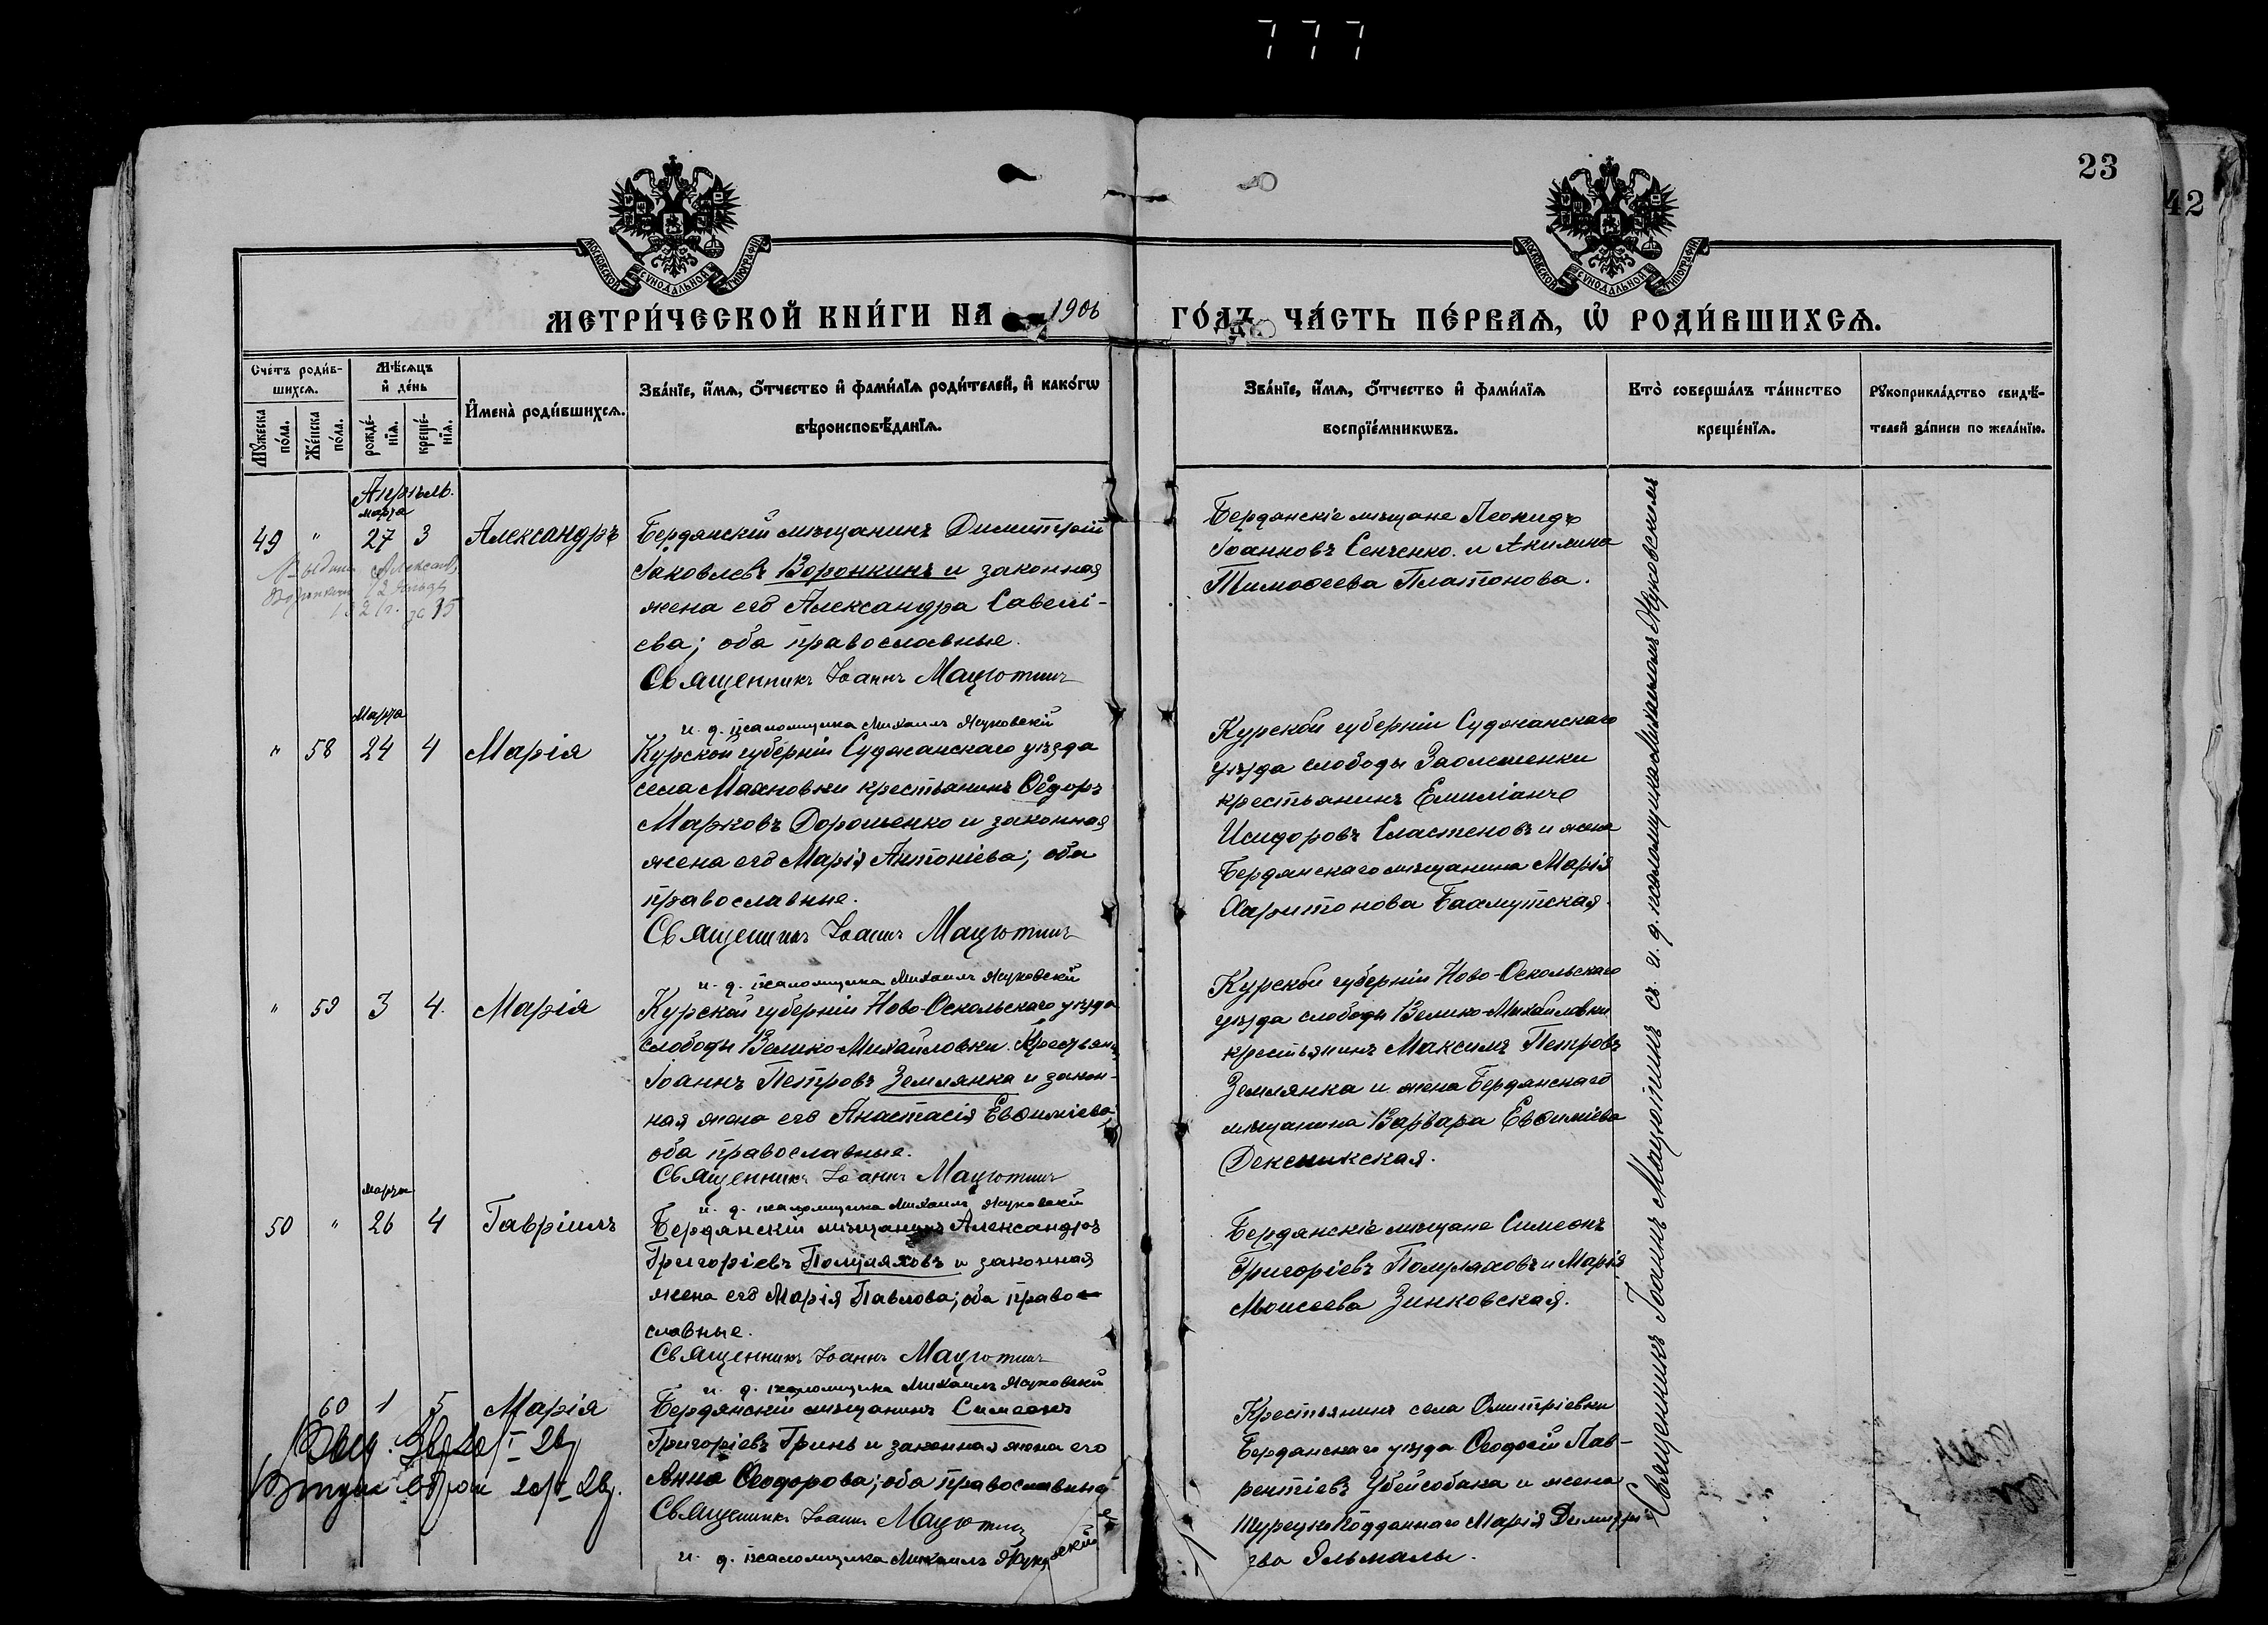 777
23
42
МОСКОВСКОЙ СѴНОДАЛЬНОЙ ТИПОГРАФІИ
МОСКОВСКОЙ СѴНОДАЛЬНОЙ ТИПОГРАФІИ
МЕТРИ́ЧЕСКОЙ КНИ́ГИ НА 1906 ГО́ДЪ, ЧА́СТЬ ПЕ́РВАѦ, Ѡ РОДИ́ВШИХСѦ.
Сче́тъ роди́в-
шихсѧ.
Мꙋ́жеска по́ла.
Же́нска по́ла.
Мѣ́сѧцъ и҆ де́нь
рожде́-нїѧ.
креще́-нїѧ.
И҆мена̀ роди́вшихсѧ.
Зва́нїе, и҆́мѧ, о҆́тчество и҆ фами́лїѧ роди́телей, и҆ како́гѡ
вѣроисповѣ́данїѧ.
Зва́нїе, и҆́мѧ, о҆́тчество и҆ фами́лїѧ
воспрїе́мникѡвъ.
Кто̀ соверша́лъ та́инство
креще́нїѧ.
Рꙋкоприкла́дство свидѣ́-
телей за́писи по жела́нїю.
Апрѣль.
Марта
49 " 27 3 Александръ
Бердянскій мѣщанинъ Димитрій
Іаковлевъ Воронкинъ и законная
жена его Александра Савелі-
ева; оба православные.
Священникъ Іоаннъ Мацютинъ
и. д. псаломщика Михаилъ Жуковскій
Бердянскіе мѣщане Леонидъ
Іоанновъ Сенченко и Акилина
Тимоѳеева Платонова.
Марта
" 58 24 4 Марія
Курской губерніи Суджанскаго уѣзда
села Махновки крестьянинъ Ѳеодоръ
Марковъ Дорошенко и законная
жена его Марія Антоніева; оба
православные.
Священникъ Іоаннъ Мацютинъ
и. д. псаломщика Михаилъ Жуковскій
Курской губерніи Суджанскаго
уѣзда слободы Заолешенки
крестьянинъ Емиліанъ
Исидоровъ Сластеновъ и жена
Бердянскаго мѣщанина Марія
Харитонова Бахмутская.
" 59 3 4 Марія
Курской губерніи Ново-Оскольскаго уѣзда
слободы Велико-Михайловки крестьян.
Іоаннъ Петровъ Землянка и закон-
ная жена его Анастасія Евѳиміева;
оба православные.
Священникъ Іоаннъ Мацютинъ
и. д. псаломщика Михаилъ Жуковскій
Курской губерніи Ново-Оскольскаго
уѣзда слободы Велико-Михайловки
крестьянинъ Максимъ Петровъ
Землянка и жена Бердянскаго
мѣщанина Варвара Евѳиміева
Марта
50 " 26 4 Гавріилъ
Бердянскій мѣщанинъ Александръ
Григоріевъ Полуляховъ и законная
жена его Марія Павлова; оба право-
славные.
Священникъ Іоаннъ Мацютинъ
и. д. псаломщика Михаилъ Жуковскій
Бердянскіе мѣщане Симеонъ
Григоріевъ Полуляховъ и Марія
Моисеева Зинковская.
60 1 5 Марія
Бердянскій мѣщанинъ Симеонъ
Григоріевъ Гринь и законная жена его
Анна Ѳеодорова; оба православные
Священникъ Іоаннъ Мацютинъ
и. д. псаломщика Михаилъ Жуковскій
Крестьянинъ села Дмитріевки
Бердянскаго уѣзда Ѳеодосій Лав-
рентіевъ Убейсобака и жена
Турецко Подданнаго Марія Димитрі-
ева Эльмалы.
Священникъ Іоаннъ Мацютинъ съ и. д. псаломщика Михаиломъ Жуковскимъ